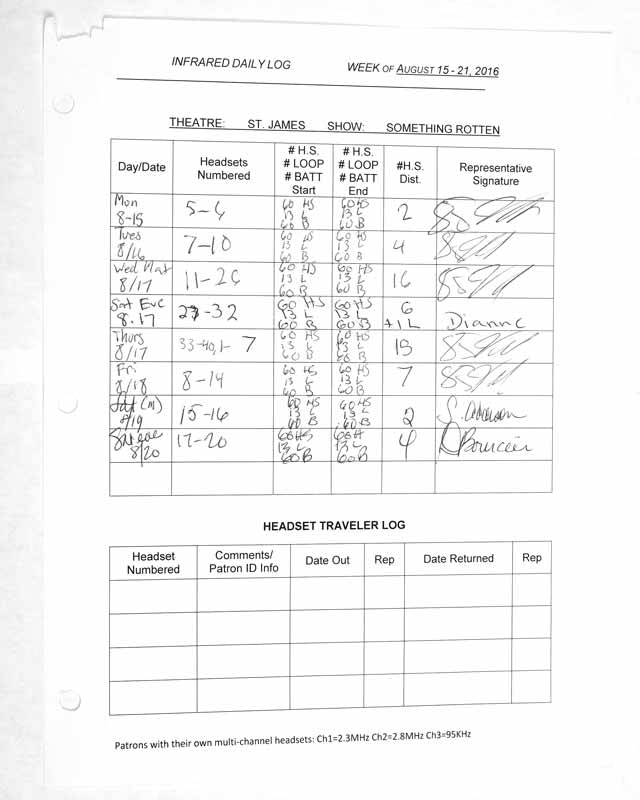 INFRARED DAILY LOG WEEK OF AUGUST 15 - 21, 2016
THEATRE: ST. JAMES SHOW: SOMETHING ROTTEN
Day/Date Headsets Numbered # H.S. # LOOP # BATT Start # H.S. # LOOP # BATT End #H.S. Dist. Representative Signature
Mon 8-15 5-6 60 HS 13 L 60 B 60 HS 13 L 60 B 2
Tues 8/16 7-10 60 HS 13 L 60 B 60 HS 13 L 60 B 4
Wed Mat 8/17 11-26 60 HS 13 L 60 B 60 HS 13 L 60 B 16
Sat Eve 8.17 27-32 60 HS 13 L 60 B 60 HS 13 L 60 B 6 +1 L Dianne
Thurs 8/17 33-40, 1-7 60 HS 13 L 60 B 60 HS 13 L 60 B 15
Fri 8/18 8-14 60 HS 13 L 60 B 60 HS 13 L 60 B 7
Sat (m) 8/19 15-16 60 HS 13 L 60 B 60 HS 13 L 60 B 2
Sat eve 8/20 17-20 60 HS 13 L 60 B 60 H 13 L 60 B 4
HEADSET TRAVELER LOG
Headset Numbered Comments/ Patron ID Info Date Out Rep Date Returned Rep
Patrons with their own multi-channel headsets: Ch1=2.3MHz Ch2=2.8MHz Ch3=95KHz